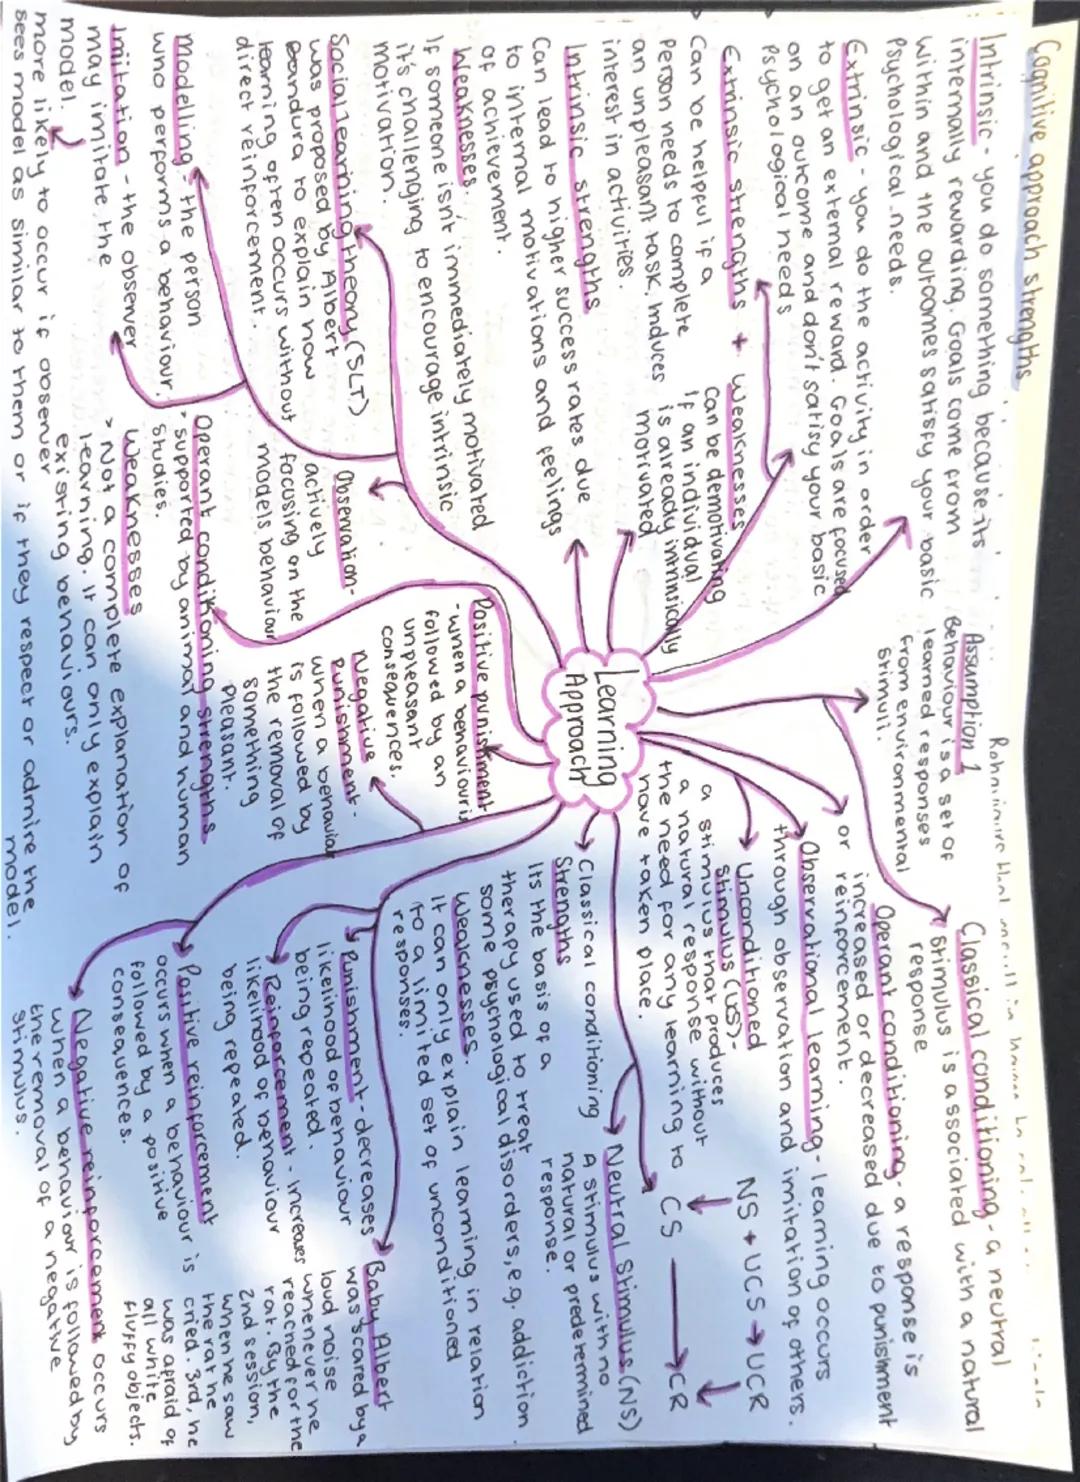 Cognitive approach strengths
Intrinsic - you do something because its
internally rewarding. Goals come from
within and the outcomes satisfy your basic
psychological needs.
Extrinsic - you do the activity in order
to get an external reward. Goals are focused
on an outcome and don't satisy your basic
psychological needs
Extrinsic strengths + weaknesses
Can be helpful if a
person needs to complete
an unpleasant task. Induces
interest in activities.
can be demotivating
if an individual
is already intrinsically
motivated
Intrinsic strengths
Can lead to higher success rates due
to internal motivations and feelings
of achievement.
Weaknesses.
If someone isn't immediately motivated
it's challenging to encourage intrinsic
motivation.
Social learning theory (SLT)
was proposed by Albert
Bandura to explain how
learning often occurs without
direct reinforcement.
Observation -
actively
focusing on the
models behaviour
Modelling - the person
who performs a behaviour.
Imitation - the observer
may imitate the
model.
more likely to occur if observer
sees model as similar to them or if they respect or admire the
model.
Operant conditioning strengths
supported by animal and human
studies.
Weaknesses
> Not a complete explanation of
learning. It can only explain
existing behaviours.
Learning
Approach
Positive punishment
- when a behaviour is
followed by an
unpleasant
consequences.
Negative
punishment -
when a behaviour
is followed by
the removal of
something
pleasant.
Assumption 1
Behaviour is a set of
learned responses
from environmental
stimuli.
Classical conditioning - a neutral
stimulus is associated with a natural
response
Operant conditioning - a response is
increased or decreased due to punishment
or reinforcement.
Observational learning - learning occurs
through observation and imitation of others.
Unconditioned
stimulus (US) -
a stimulus that produces
a natural response without
the need for any learning to
have taken place.
NS + UCS → UCR
↓ ↓
CS → CR
Neutral Stimulus. (NS)
A stimulus with no
natural or predetermined
response.
Classical conditioning
Strengths
Its the basis of a
therapy used to treat
some psychological disorders, e.g. addiction.
Weaknesses.
It can only explain learning in relation
to a limited set of unconditioned
responses.
Punishment - decreases
likelihood of behaviour
being repeated.
Reinforcement - increases
likelihood of behaviour
being repeated.
Baby Albert
was scared by a
loud noise
whenever he
reached for the
rat. By the
2nd session,
when he saw
the rat he
cried. 3rd, he
was afraid of
all white
fluffy objects.
Positive reinforcement
occurs when a behaviour is
followed by a positive
consequences.
Negative reinforcement occurs
when a behaviour is followed by
the removal of a negative
stimulus.